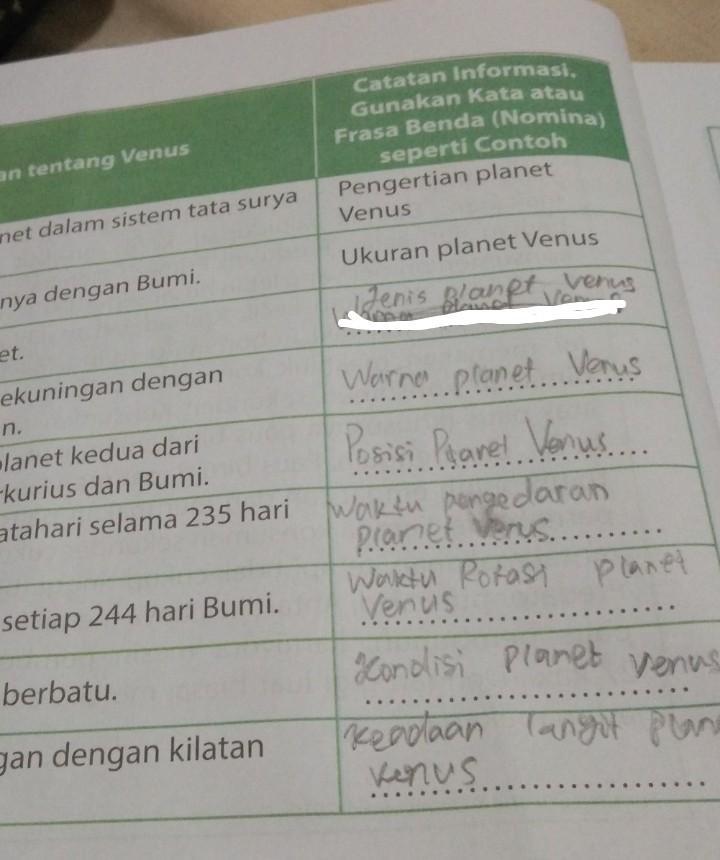 an tentang Venus
Catatan Informasi.
Gunakan Kata atau
Frasa Benda (Nomina)
seperti Contoh
net dalam sistem tata surya
Pengertian planet
Venus
nya dengan Bumi.
Ukuran planet Venus
et.
Jenis planet venus
ekuningan dengan
n.
Warna planet Venus
planet kedua dari
rkurius dan Bumi.
Posisi Planet Venus
atahari selama 235 hari
Waktu pengedaran
planet Venus
setiap 244 hari Bumi.
Waktu Rotasi planet
Venus
berbatu.
Kondisi planet venus
gan dengan kilatan
keadaan langit plan
venus